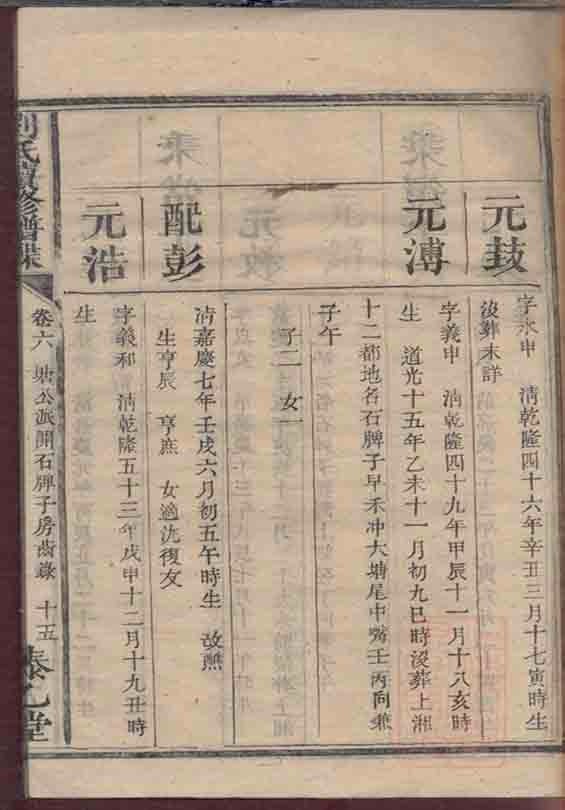 元鼓
字永申 清乾隆四十六年辛丑三月十七寅時生
沒葬未詳
元溥
字義申 清乾隆四十九年甲辰十一月十八亥時
生 道光十五年乙未十一月初九巳時沒葬上湘
十二都地名石牌子早禾冲大塘尾中嘴壬丙向兼
子午
子二 女一
配彭
清嘉慶七年壬戌六月初五午時生 故無
生亨辰 亨庶 女適沈復友
元浩
字義和 清乾隆五十三年戊申十二月十九丑時
生
劉氏續修譜牒
卷六 塘公派開石牌子房齒錄 十五
乙堂